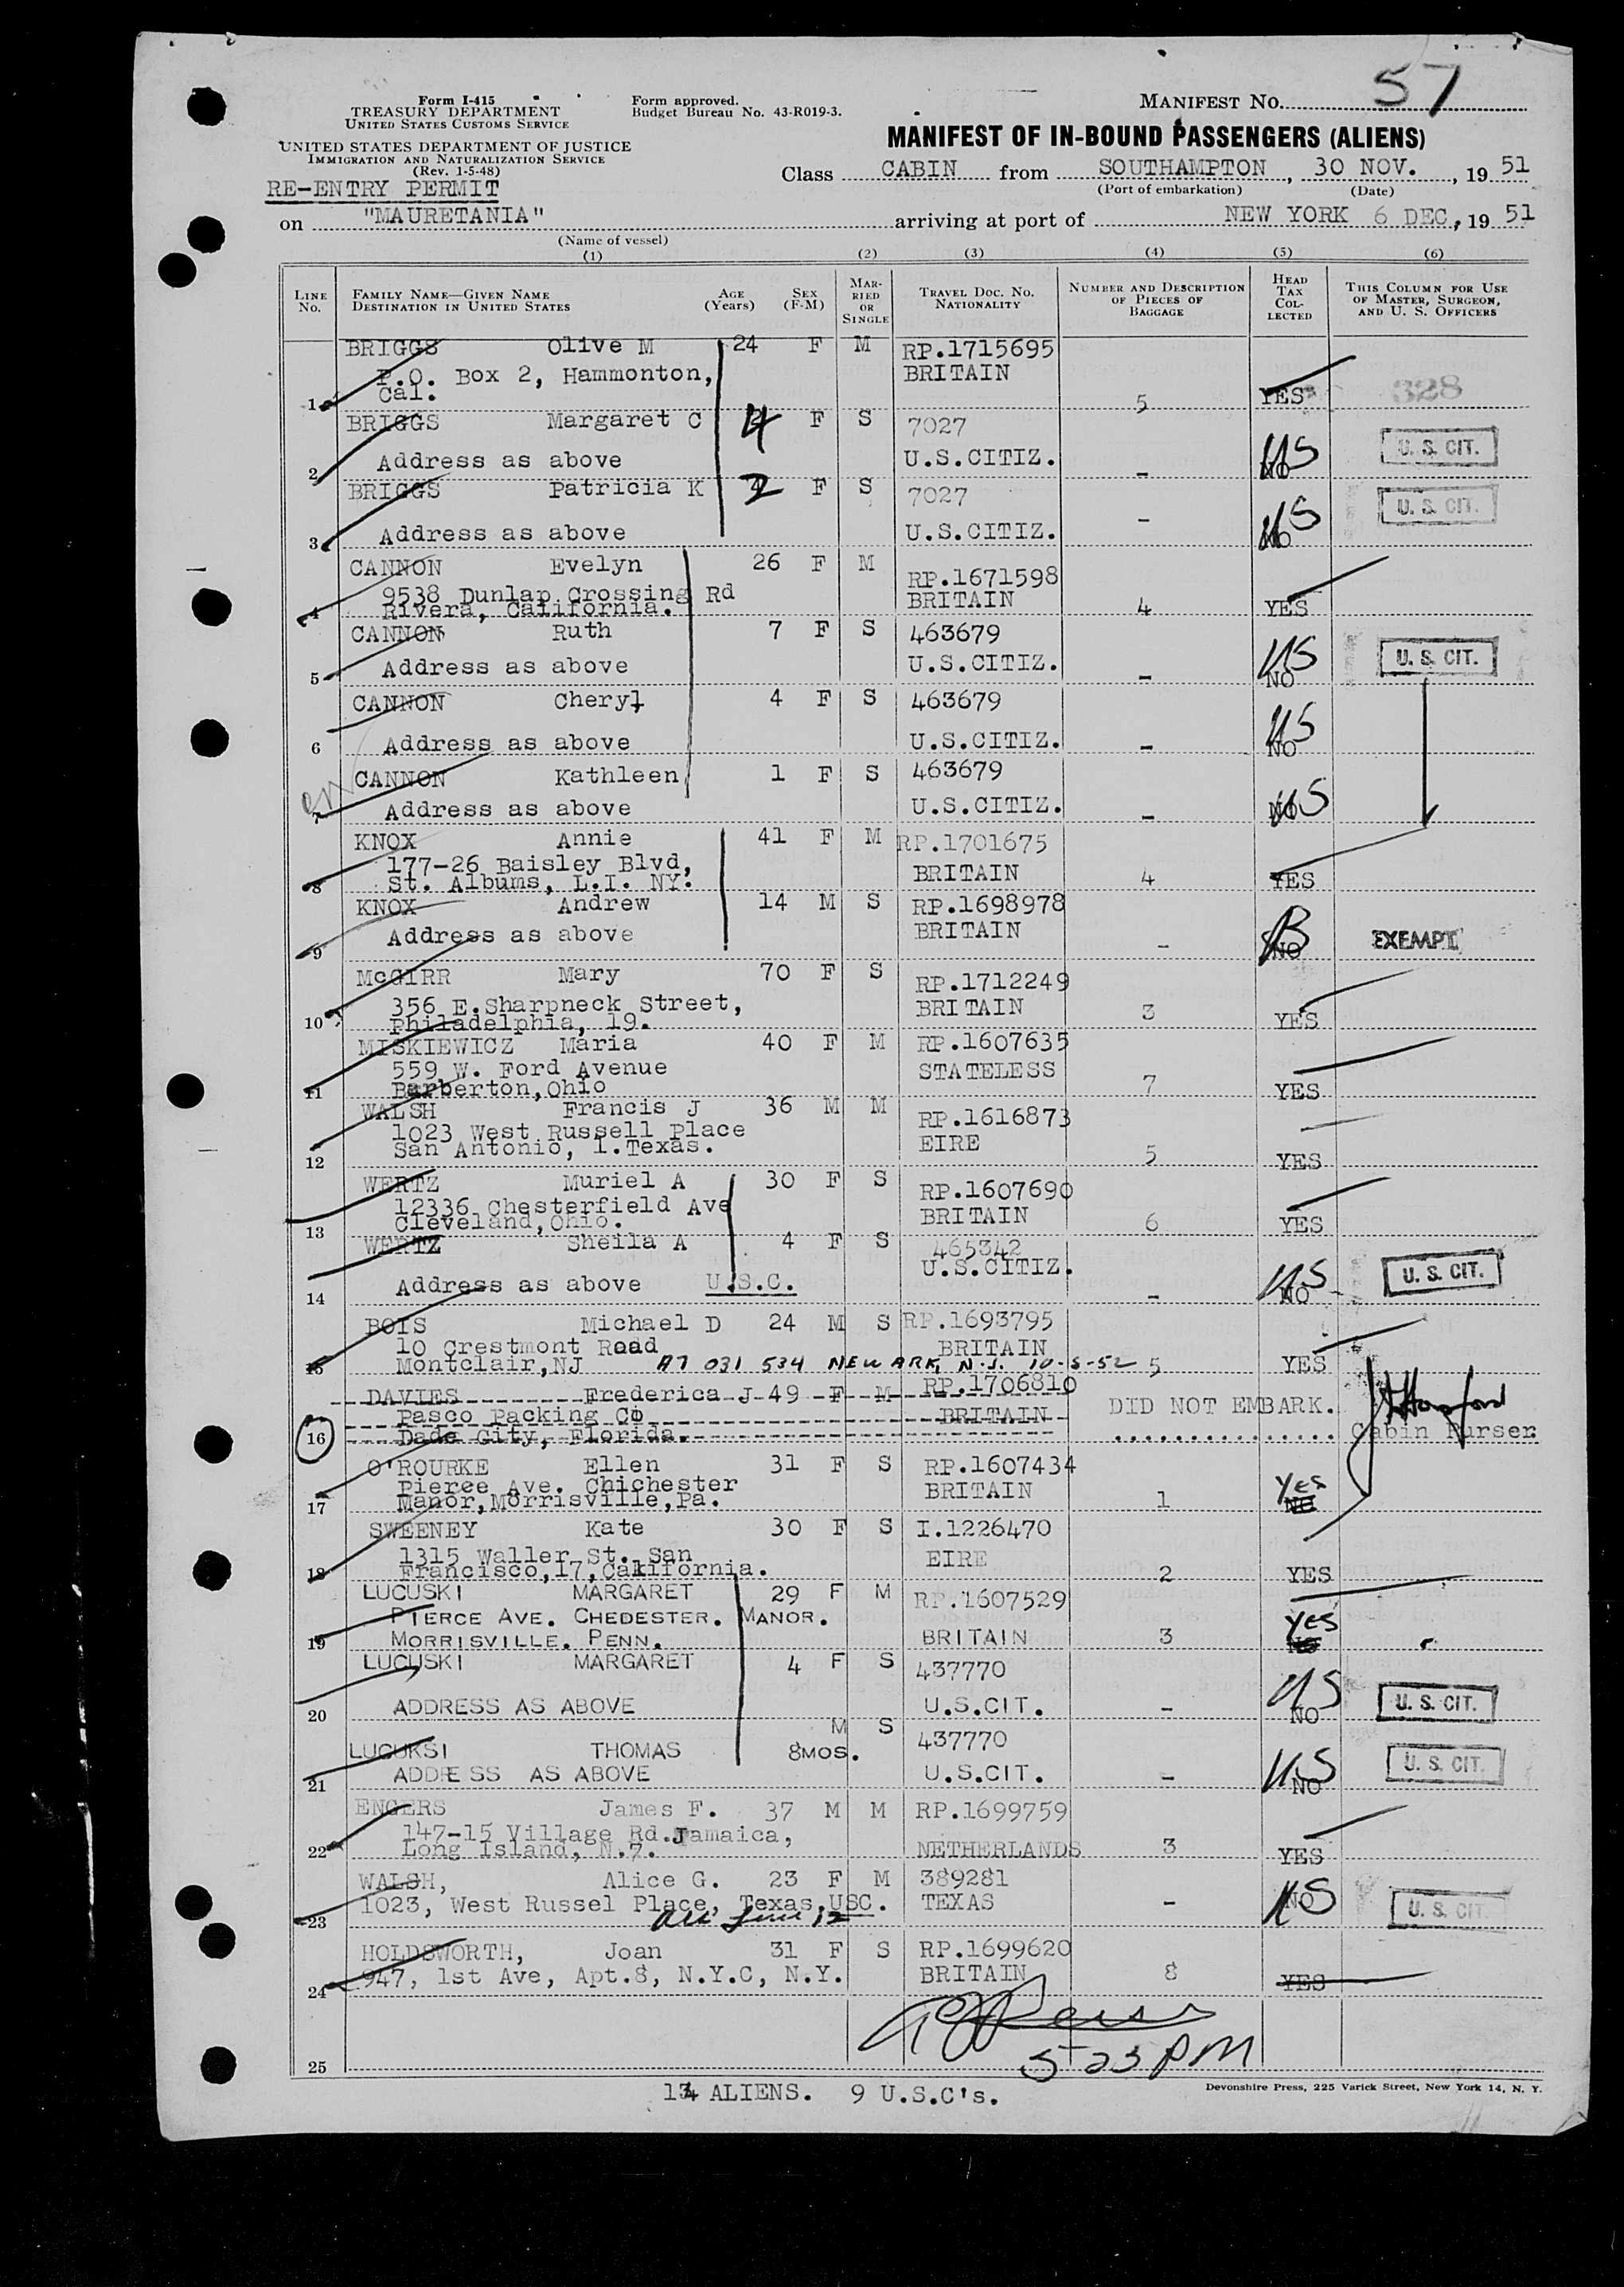 57
Form I-415
TREASURY DEPARTMENT
UNITED STATES CUSTOMS SERVICE
Form approved.
Budget Bureau No. 43-R019-3.
MANIFEST NO.
UNITED STATES DEPARTMENT OF JUSTICE
IMMIGRATION AND NATURALIZATION SERVICE
(Rev. 1-5-48)
RE-ENTRY PERMIT
MANIFEST OF IN-BOUND PASSENGERS (ALIENS)
Class CABIN from SOUTHAMPTON, 30 NOV., 19 51
(Port of embarkation) (Date)
on "MAURETANIA" arriving at port of NEW YORK 6 DEC, 19 51
(Name of vessel)
(1) (2) (3) (4) (5) (6)
LINE NO. FAMILY NAME—GIVEN NAME DESTINATION IN UNITED STATES AGE (Years) SEX (F-M) MARRIED OR SINGLE TRAVEL DOC. NO. NATIONALITY NUMBER AND DESCRIPTION OF PIECES OF BAGGAGE HEAD TAX COLLECTED THIS COLUMN FOR USE OF MASTER, SURGEON, AND U. S. OFFICERS
BRIGGS Olive M 24 F M RP.1715695
P.O. Box 2, Hammonton, BRITAIN
1 Cal. 5 YES 328
BRIGGS Margaret C 4 F S 7027
2 Address as above U.S.CITIZ. - NO US U. S. CIT.
BRIGGS Patricia K 2 F S 7027
3 Address as above U.S.CITIZ. - NO US U. S. CIT.
CANNON Evelyn 26 F M RP.1671598
9538 Dunlap Crossing Rd BRITAIN
4 Rivera, California. 4 YES
CANNON Ruth 7 F S 463679
5 Address as above U.S.CITIZ. - NO US U. S. CIT.
CANNON Cheryl 4 F S 463679
6 Address as above U.S.CITIZ. - NO US
CANNON Kathleen 1 F S 463679
7 Address as above U.S.CITIZ. - NO US
KNOX Annie 41 F M RP.1701675
177-26 Baisley Blvd, BRITAIN
8 St. Albums, L.I. NY. 4 YES
KNOX Andrew 14 M S RP.1698978
9 Address as above BRITAIN - NO EXEMPT
McGIRR Mary 70 F S RP.1712249
356 E.Sharpneck Street, BRITAIN
10 Philadelphia, 19. 3 YES
MISKIEWICZ Maria 40 F M RP.1607635
559 W. Ford Avenue STATELESS
11 Barberton,Ohio 7 YES
WALSH Francis J 36 M M RP.1616873
1023 West Russell Place EIRE
12 San Antonio, 1.Texas. 5 YES
WERTZ Muriel A 30 F S RP.1607690
12336 Chesterfield Ave BRITAIN
13 Cleveland,Ohio. 6 YES
WERTZ Sheila A 4 F S 465342
U.S.CITIZ.
14 Address as above U.S.C. - NO US U. S. CIT.
BOIS Michael D 24 M S RP.1693795
10 Crestmont Road BRITAIN
15 Montclair,NJ A7 031 534 NEWARK, N.J. 10-5-52 5 YES
DAVIES Frederica J 49 F M RP.1706810
Pasco Packing Co BRITAIN DID NOT EMBARK.
16 Dade City, Florida. Cabin Purser
O'ROURKE Ellen 31 F S RP.1607434
Pierce Ave. Chichester BRITAIN
17 Manor,Morrisville,Pa. 1 NO Yes
SWEENEY Kate 30 F S I.1226470
1315 Waller St. San EIRE
18 Francisco,17,California. 2 YES
LUCUSKI MARGARET 29 F M RP.1607529
PIERCE AVE. CHEDESTER. MANOR.
19 MORRISVILLE. PENN. BRITAIN 3 YES
LUCUSKI MARGARET 4 F S 437770
20 ADDRESS AS ABOVE U.S.CIT. - NO US U. S. CIT.
M S
LUCUKSI THOMAS 8MOS. 437770
21 ADDRESS AS ABOVE U.S.CIT. - NO US U. S. CIT.
ENGERS James F. 37 M M RP.1699759
147-15 Village Rd.Jamaica,
22 Long Island, N.7. NETHERLANDS 3 YES
WALSH, Alice G. 23 F M 389281
1023, West Russel Place, Texas.USC. TEXAS - NO US U. S. CIT.
23 line 12
HOLDSWORTH, Joan 31 F S RP.1699620
947, 1st Ave, Apt.8, N.Y.C, N.Y. BRITAIN 8 YES
24
5 23 PM
25
14 ALIENS. 9 U.S.C's.
Devonshire Press, 225 Varick Street, New York 14, N. Y.